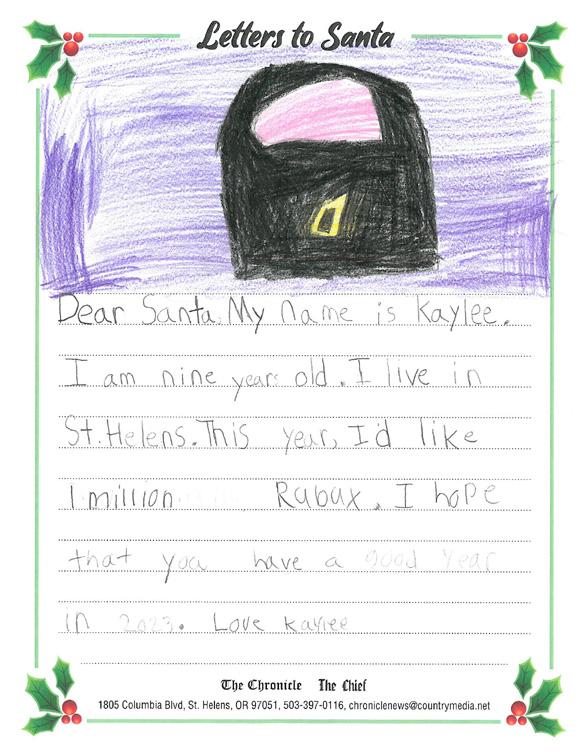 Letters to Santa
Dear Santa. My name is Kaylee.
I am nine years old. I live in
St. Helens. This year, I'd like
1 million Rubux. I hope
that you have a good year
in 2023. Love Kaylee
The Chronicle The Chief
1805 Columbia Blvd, St. Helens, OR 97051, 503-397-0116, chroniclenews@countrymedia.net